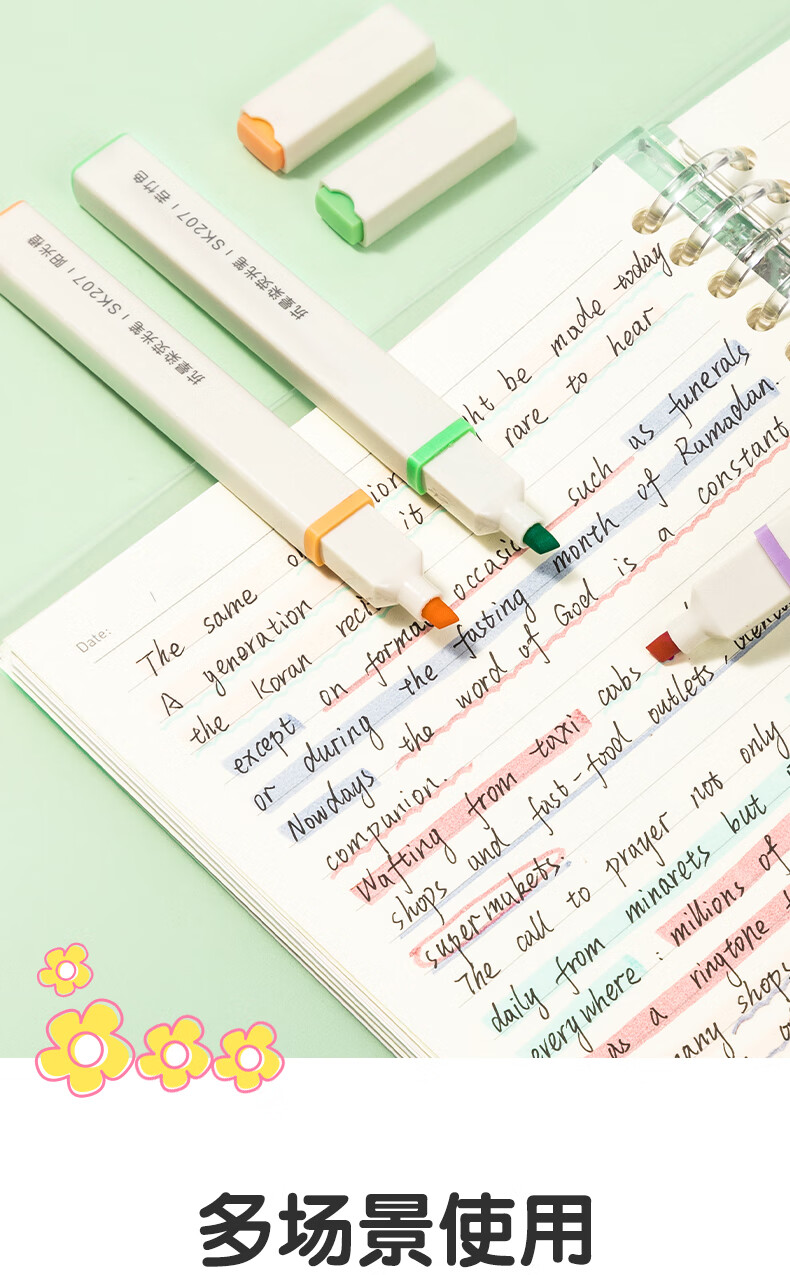 抗晕染荧光笔 | SK207 | 若竹色
抗晕染荧光笔 | SK207 | 阳光橙
Date:
ht be made today
The same
it rare to hear
A generation
such as funerals
the Koran
except on formal
month of Ramadan.
or during the fasting
Nowdays the word of God is a constant
companion.
Wafting from taxi cabs
shops and fast-food outlets,
supermukets.
The call to prayer not only
daily from minarets but
everywhere : millions of
as a ringtone
many shops
多场景使用